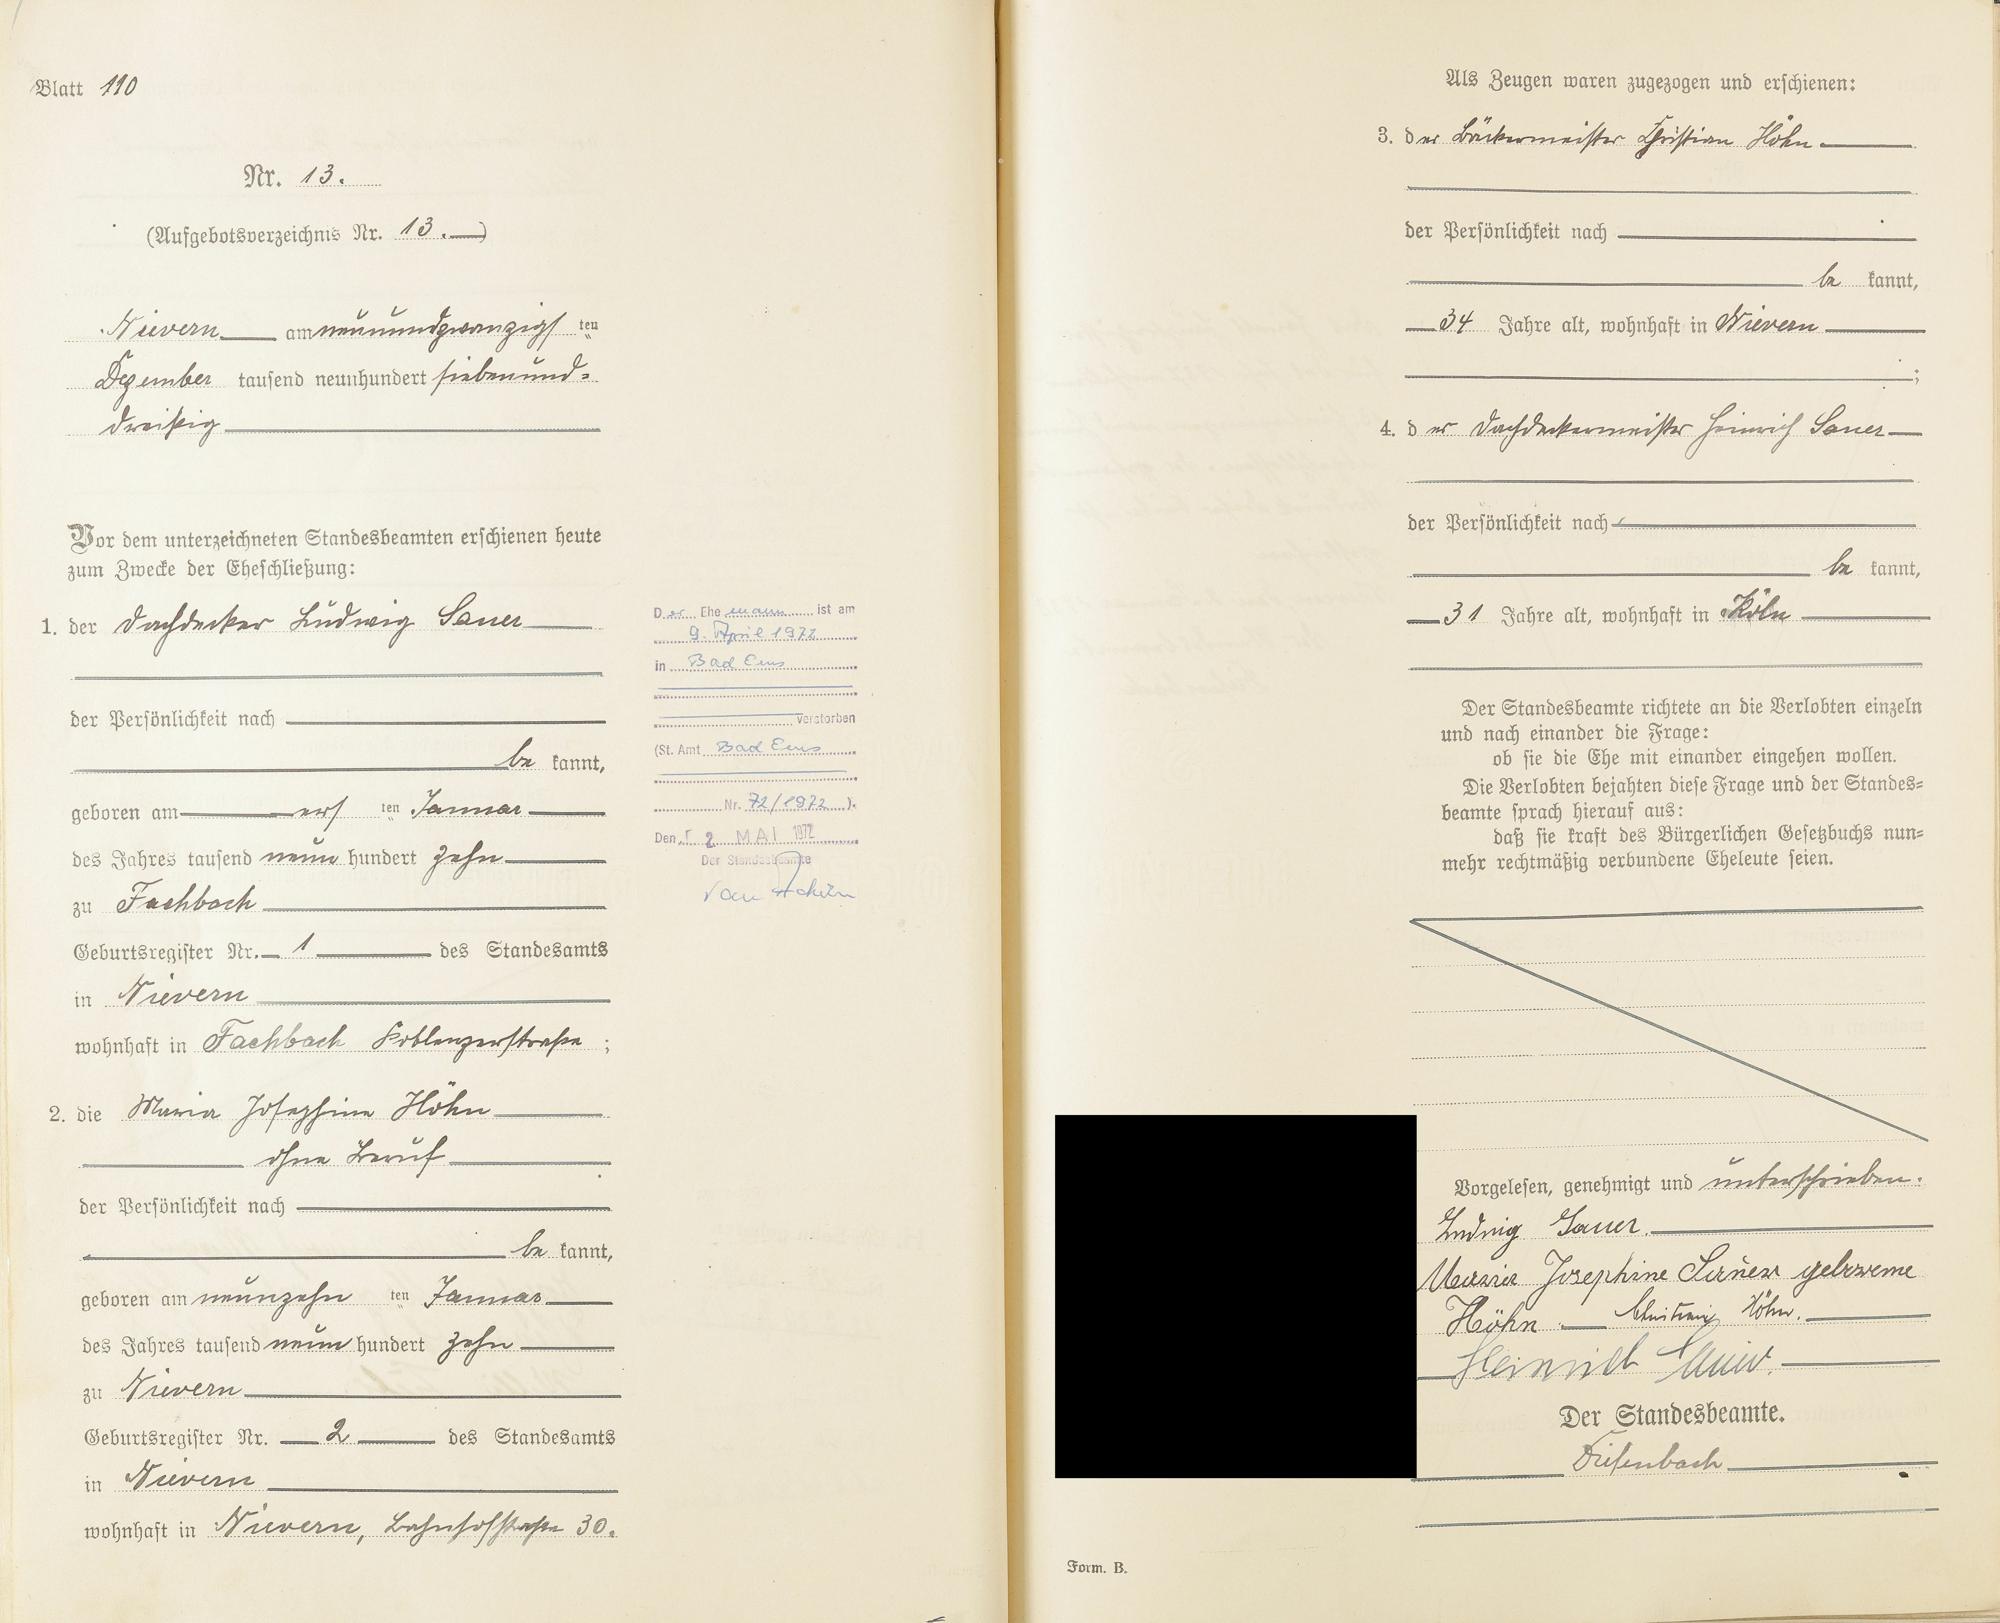 Blatt 110
Nr. 13.
(Aufgebotsverzeichnis Nr. 13.)
Nievern am neunundzwanzigsten
Dezember tausend neunhundert siebenund-
dreißig
Vor dem unterzeichneten Standesbeamten erschienen heute
zum Zwecke der Eheschließung:
1. der Dachdecker Ludwig Sauer
der Persönlichkeit nach
be kannt,
geboren am ersten Januar
des Jahres tausend neun hundert zehn
zu Fachbach
Geburtsregister Nr. 1 des Standesamts
in Nievern
wohnhaft in Fachbach Koblenzerstraße ;
2. die Maria Josephine Höhn
ohne Beruf
der Persönlichkeit nach
be kannt,
geboren am neunzehn ten Januar
des Jahres tausend neun hundert zehn
zu Nievern
Geburtsregister Nr. 2 des Standesamts
in Nievern
wohnhaft in Nievern, Bahnhofstraße 30.
Der Ehemann ist am
9. April 1972
in Bad Ems
verstorben
(St. Amt Bad Ems
Nr. 72/1972 ).
Den 2. MAI 1972
Der Standesbeamte
Als Zeugen waren zugezogen und erschienen:
3. der Bäckermeister Christian Höhn
der Persönlichkeit nach
be kannt,
34 Jahre alt, wohnhaft in Nievern
;
4. der Dachdeckermeister Heinrich Sauer
der Persönlichkeit nach
be kannt,
31 Jahre alt, wohnhaft in Köln
Der Standesbeamte richtete an die Verlobten einzeln
und nach einander die Frage:
ob sie die Ehe mit einander eingehen wollen.
Die Verlobten bejahten diese Frage und der Standes-
beamte sprach hierauf aus:
daß sie kraft des Bürgerlichen Gesetzbuchs nun-
mehr rechtmäßig verbundene Eheleute seien.
Vorgelesen, genehmigt und unterschrieben.
Ludwig Sauer.
Maria Josephine Sauer geborene
Höhn Christian Höhn.
Heinrich Sauer.
Der Standesbeamte.
Diefenbach
Form. B.